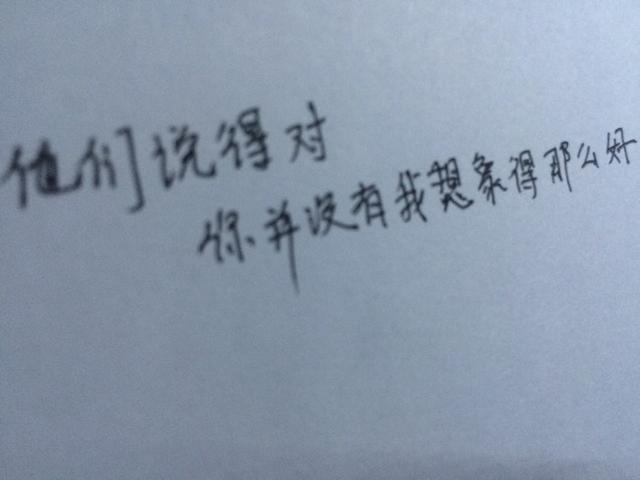 他们说得对
你并没有我想象得那么好